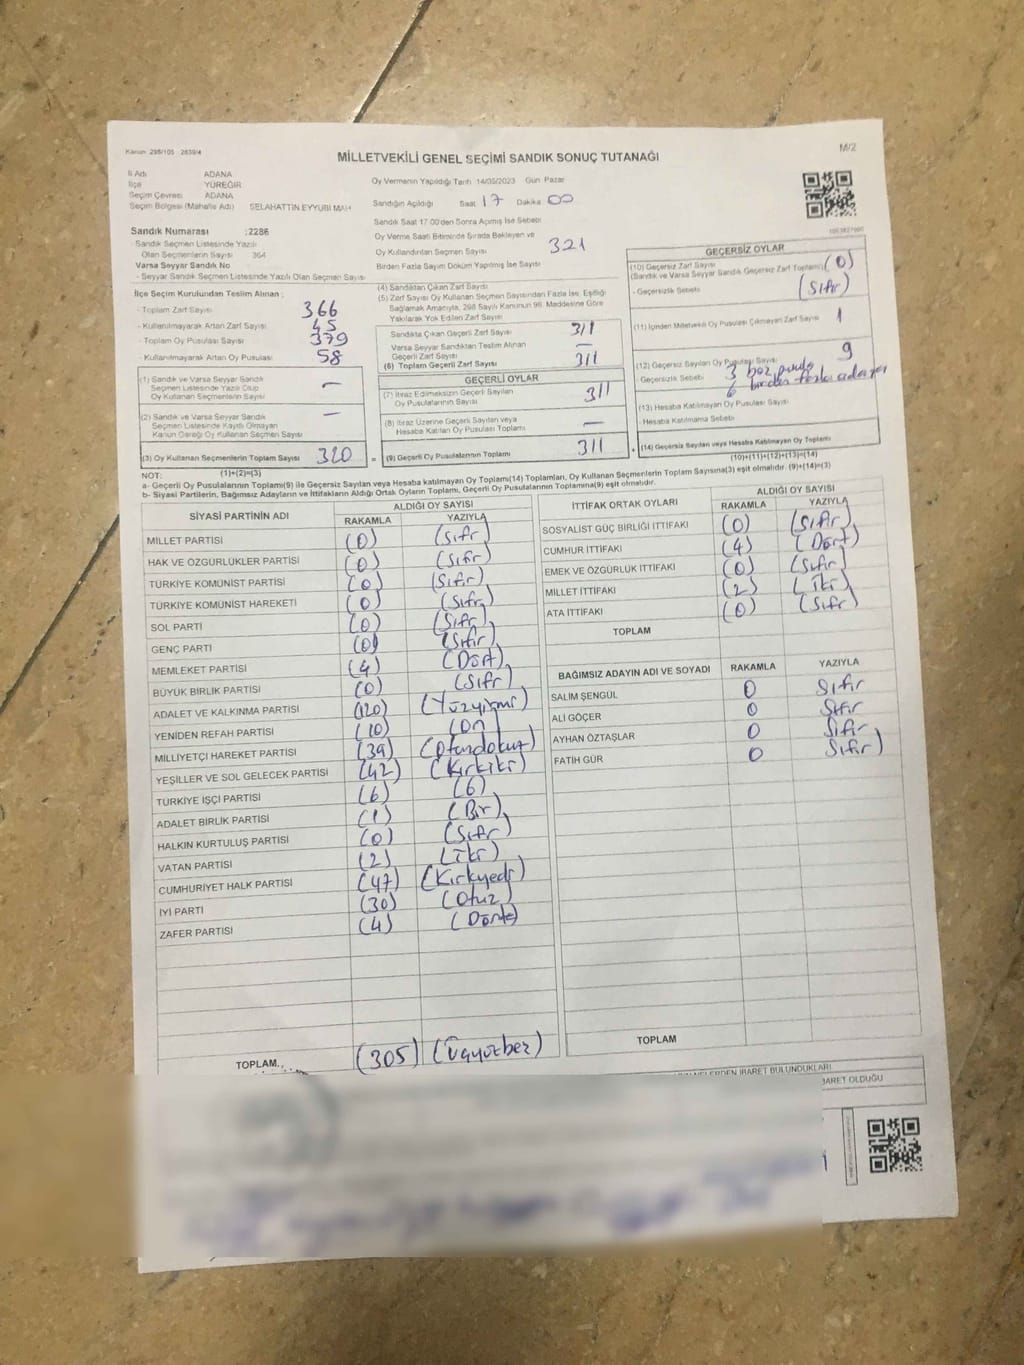 Kanun 298/105 2839/4
MİLLETVEKİLİ GENEL SEÇİMİ SANDIK SONUÇ TUTANAĞI
M/2
İli Adı ADANA
İlçe YÜREĞİR
Seçim Çevresi ADANA
Seçim Bölgesi (Mahalle Adı) SELAHATTİN EYYUBİ MAH
Sandık Numarası :2286
- Sandık Seçmen Listesinde Yazılı
Olan Seçmenlerin Sayısı 364
Varsa Seyyar Sandık No
- Seyyar Sandık Seçmen Listesinde Yazılı Olan Seçmen Sayısı
Oy Vermenin Yapıldığı Tarih 14/05/2023 Gün Pazar
Sandığın Açıldığı Saat 17 Dakika 00
Sandık Saat 17:00'den Sonra Açılmış İse Sebebi
Oy Verme Saati Bitiminde Sırada Bekleyen ve
Oy Kullandırılan Seçmen Sayısı 321
Birden Fazla Sayım Döküm Yapılmış İse Sayısı
İlçe Seçim Kurulundan Teslim Alınan :
- Toplam Zarf Sayısı 366
- Kullanılmayarak Artan Zarf Sayısı 45
- Toplam Oy Pusulası Sayısı 379
- Kullanılmayarak Artan Oy Pusulası 58
(1) Sandık ve Varsa Seyyar Sandık
Seçmen Listesinde Yazılı Olup
Oy Kullanan Seçmenlerin Sayısı —
(2) Sandık ve Varsa Seyyar Sandık
Seçmen Listesinde Kaydı Olmayan
Kanun Gereği Oy Kullanan Seçmen Sayısı —
(3) Oy Kullanan Seçmenlerin Toplam Sayısı 320
(1)+(2)=(3)
(4) Sandıktan Çıkan Zarf Sayısı
(5) Zarf Sayısı Oy Kullanan Seçmen Sayısından Fazla İse, Eşitliği
Sağlamak Amacıyla, 298 Sayılı Kanunun 98. Maddesine Göre
Yakılarak Yok Edilen Zarf Sayısı
Sandıkta Çıkan Geçerli Zarf Sayısı 311
Varsa Seyyar Sandıktan Teslim Alınan
Geçerli Zarf Sayısı —
(6) Toplam Geçerli Zarf Sayısı 311
GEÇERLİ OYLAR
(7) İtiraz Edilmeksizin Geçerli Sayılan
Oy Pusulalarının Sayısı 311
(8) İtiraz Üzerine Geçerli Sayılan veya
Hesaba Katılan Oy Pusulası Toplamı —
= (9) Geçerli Oy Pusulalarının Toplamı 311
GEÇERSİZ OYLAR
(10) Geçersiz Zarf Sayısı
(Sandık ve Varsa Seyyar Sandık Geçersiz Zarf Toplamı) (0)
- Geçersizlik Sebebi (Sıfır)
(11) İçinden Milletvekili Oy Pusulası Çıkmayan Zarf Sayısı 1
(12) Geçersiz Sayılan Oy Pusulası Sayısı 9
- Geçersizlik Sebebi 3 boz pusula
6 birden fazla
(13) Hesaba Katılmayan Oy Pusulası Sayısı
- Hesaba Katılmama Sebebi
+ (14) Geçersiz Sayılan veya Hesaba Katılmayan Oy Toplamı
(10)+(11)+(12)+(13)=(14)
NOT:
a- Geçerli Oy Pusulalarının Toplamı(9) ile Geçersiz Sayılan veya Hesaba katılmayan Oy Toplamı(14) Toplamları, Oy Kullanan Seçmenlerin Toplam Sayısına(3) eşit olmalıdır. (9)+(14)=(3)
b- Siyasi Partilerin, Bağımsız Adayların ve İttifakların Aldığı Ortak Oyların Toplamı, Geçerli Oy Pusulalarının Toplamına(9) eşit olmalıdır.
SİYASİ PARTİNİN ADI ALDIĞI OY SAYISI
RAKAMLA YAZIYLA
MİLLET PARTİSİ (0) (Sıfır)
HAK VE ÖZGÜRLÜKLER PARTİSİ (0) (Sıfır)
TÜRKİYE KOMÜNİST PARTİSİ (0) (Sıfır)
TÜRKİYE KOMÜNİST HAREKETİ (0) (Sıfır)
SOL PARTİ (0) (Sıfır)
GENÇ PARTİ (0) (Sıfır)
MEMLEKET PARTİSİ (4) (Dört)
BÜYÜK BİRLİK PARTİSİ (0) (Sıfır)
ADALET VE KALKINMA PARTİSİ (120) (Yüzyirmi)
YENİDEN REFAH PARTİSİ (10) (On)
MİLLİYETÇİ HAREKET PARTİSİ (39) (Otuzdokuz)
YEŞİLLER VE SOL GELECEK PARTİSİ (42) (Kırkiki)
TÜRKİYE İŞÇİ PARTİSİ (6) (6)
ADALET BİRLİK PARTİSİ (1) (Bir)
HALKIN KURTULUŞ PARTİSİ (0) (Sıfır)
VATAN PARTİSİ (2) (İki)
CUMHURİYET HALK PARTİSİ (47) (Kırkyedi)
İYİ PARTİ (30) (Otuz)
ZAFER PARTİSİ (4) (Dört)
TOPLAM (305) (Üçyüzbeş)
İTTİFAK ORTAK OYLARI ALDIĞI OY SAYISI
RAKAMLA YAZIYLA
SOSYALİST GÜÇ BİRLİĞİ İTTİFAKI (0) (Sıfır)
CUMHUR İTTİFAKI (4) (Dört)
EMEK VE ÖZGÜRLÜK İTTİFAKI (0) (Sıfır)
MİLLET İTTİFAKI (2) (İki)
ATA İTTİFAKI (0) (Sıfır)
TOPLAM
BAĞIMSIZ ADAYIN ADI VE SOYADI RAKAMLA YAZIYLA
SALİM ŞENGÜL 0 Sıfır
ALİ GÖÇER 0 Sıfır
AYHAN ÖZTAŞLAR 0 Sıfır
FATİH GÜR 0 Sıfır)
TOPLAM
İBARET BULUNDUKLARI
İBARET OLDUĞU